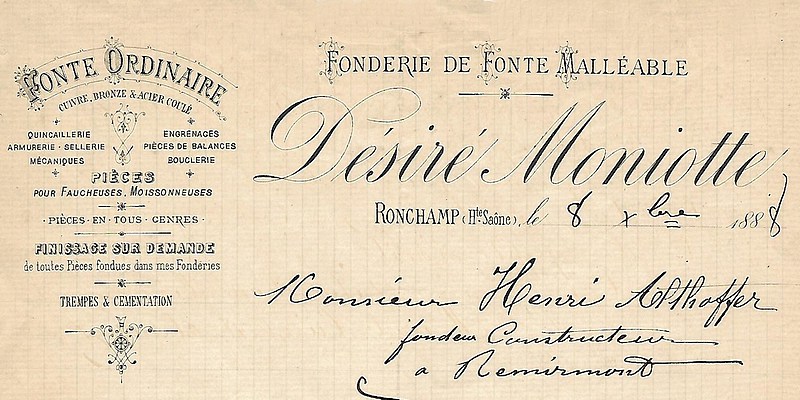 FONTE ORDINAIRE
CUIVRE, BRONZE & ACIER COULÉ
QUINCAILLERIE
ARMURERIE - SELLERIE
MÉCANIQUES
ENGRÉNAGES
PIÈCES DE BALANCES
BOUCLERIE
PIÈCES
POUR FAUCHEUSES, MOISSONNEUSES
- PIÈCES - EN - TOUS - GENRES -
FINISSAGE SUR DEMANDE
de toutes Pièces fondues dans mes Fonderies
TREMPES & CEMENTATION
FONDERIE DE FONTE MALLÉABLE
Désiré Moniotte
RONCHAMP (Hte Saône), le 8 Xbre 1888
Monsieur Henri Althoffer
fondeur Constructeur
a Remirmont